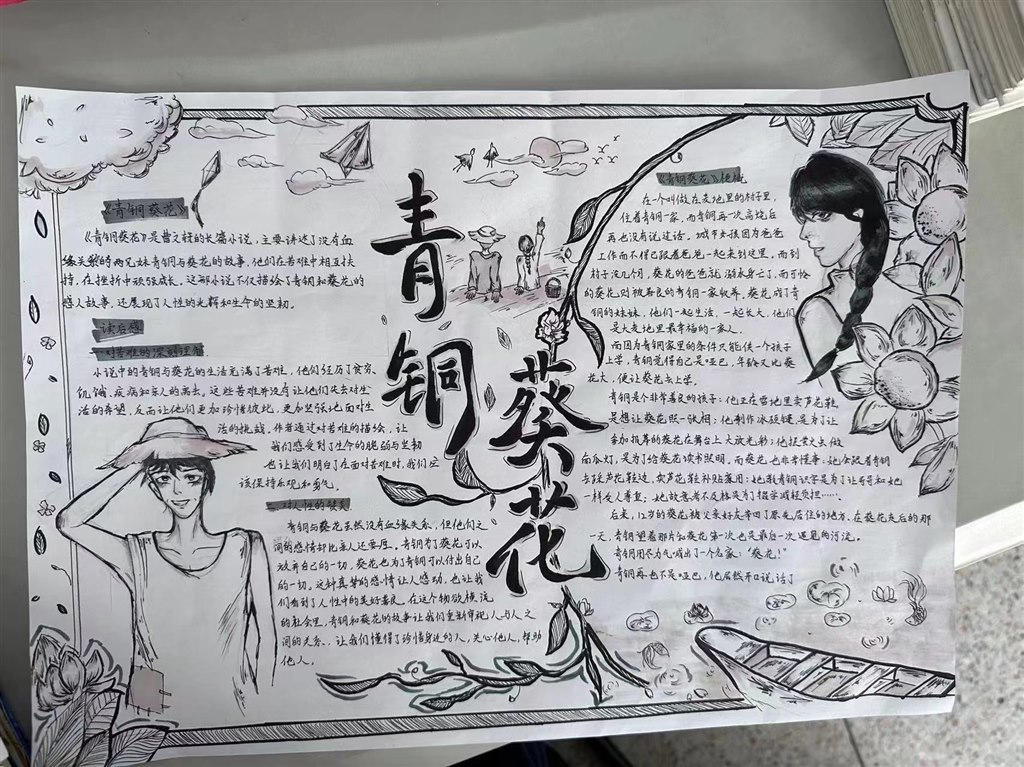 青铜
葵花
《青铜葵花》
《青铜葵花》是曹文轩的长篇小说，主要讲述了没有血
缘关系的两兄妹青铜与葵花的故事，他们在苦难中相互扶
持，在挫折中顽强成长。这部小说不仅描绘了青铜和葵花的
感人故事，还展现了人性的光辉和生命的坚韧。
读后感
一对苦难的深刻理解
小说中的青铜与葵花的生活充满了苦难，他们经历了贫穷、
饥饿、疾病和亲人的离去。这些苦难并没有让他们失去对生
活的希望，反而让他们更加珍惜彼此，更加坚强地面对生
活的挑战，作者通过对苦难的描绘，让
我们感受到了生命的脆弱与坚韧
也让我们明白了在面对苦难时，我们应
该保持乐观和勇气。
二对人性的赞美
青铜与葵花虽然没有血缘关系，但他们之
间的感情却比亲人还要厚。青铜为了葵花可以
放弃自己的一切，葵花也为了青铜可以付出自己
的一切。这种真挚的感情让人感动，也让我
们看到了人性中的美好善良。在这个物欲横流
的社会里，青铜和葵花的故事让我们重新审视人与人之
间的关系，让我们懂得了珍惜身边的人，关心他人，帮助
他人。
《青铜葵花》梗概
在一个叫做大麦地里的村子里，
住着青铜一家，而青铜再一次高烧后
再也没有说过话。城市女孩因为爸爸
工作而不得已跟着爸爸一起来到这里，而到
村子没几个月，葵花的爸爸就溺水身亡，而可怜
的葵花则被善良的青铜一家收养。葵花成了青
铜的妹妹，他们一起生活，一起长大，他们
是大麦地里最幸福的一家人。
而因为青铜家里的条件只能供一个孩子
上学，青铜觉得自己是哑巴，年龄又比葵
花大，便让葵花去上学。
青铜是个非常善良的孩子：他正在雪地里卖芦花鞋
是想让葵花照一张相；他制作冰项链，是为了让
参加报幕的葵花在舞台上大放光彩；他捉萤火虫做
南瓜灯，是为了给葵花读书照明。而葵花也非常懂事：她会跟着青铜
去踩芦花鞋边，卖芦花鞋补贴家用；她教青铜识字是为了让哥哥和她
一样受人尊重；她故意考不及格是为了辍学减轻负担……
后来，12岁的葵花被父亲好友带回了原先居住的地方。在葵花走后的那
一天，青铜望着那片和葵花第一次也是最后一次遇见的河流。
青铜用尽力气喊出了一个名家：“葵花！”
青铜再也不是哑巴，他居然开口说话了